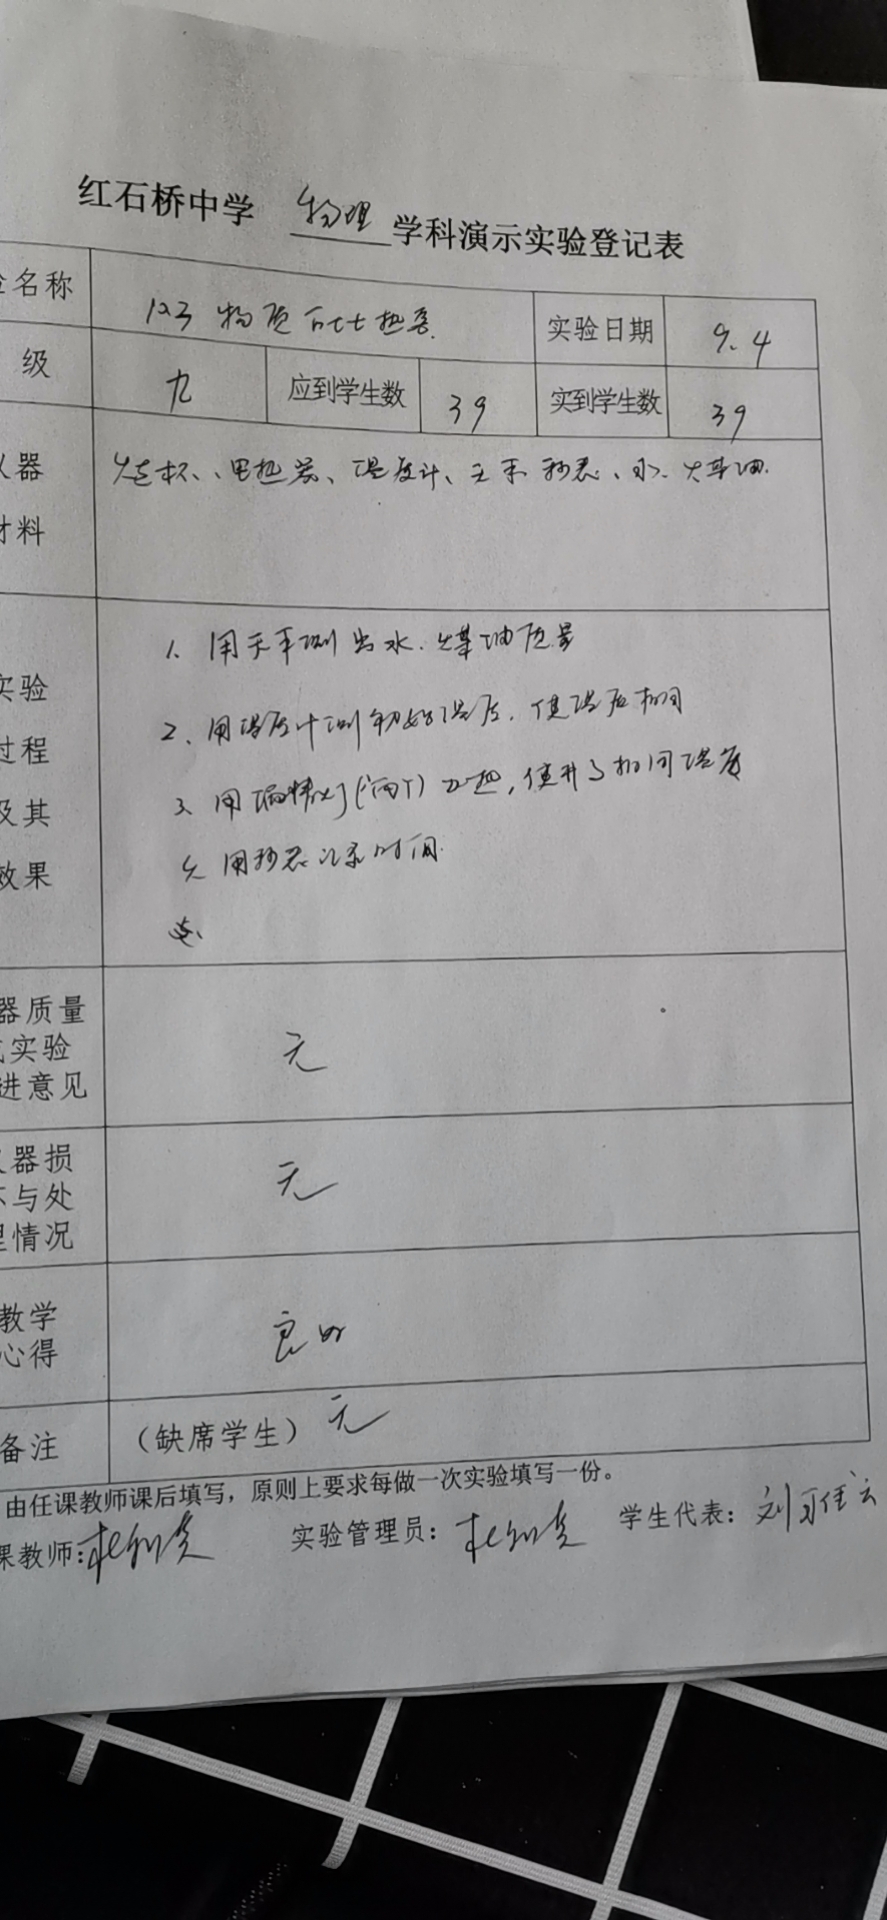 红石桥中学 物理 学科演示实验登记表
名称 12.3 物质的比热容 实验日期 9.4
级 九 应到学生数 39 实到学生数 39
器 烧杯、电热器、温度计、天平 秒表、水、煤油
材料
实验 1、用天平测出水、煤油质量
过程 2、用温度计测初始温度,使温度相同
及其 3、用酒精灯(两个)加热,使升高相同温度
效果 4、用秒表记录时间
器质量
实验 无
进意见
器损
与处 无
情况
教学 良好
心得
备注 (缺席学生) 无
由任课教师课后填写,原则上要求每做一次实验填写一份。
课教师: 实验管理员: 学生代表:刘